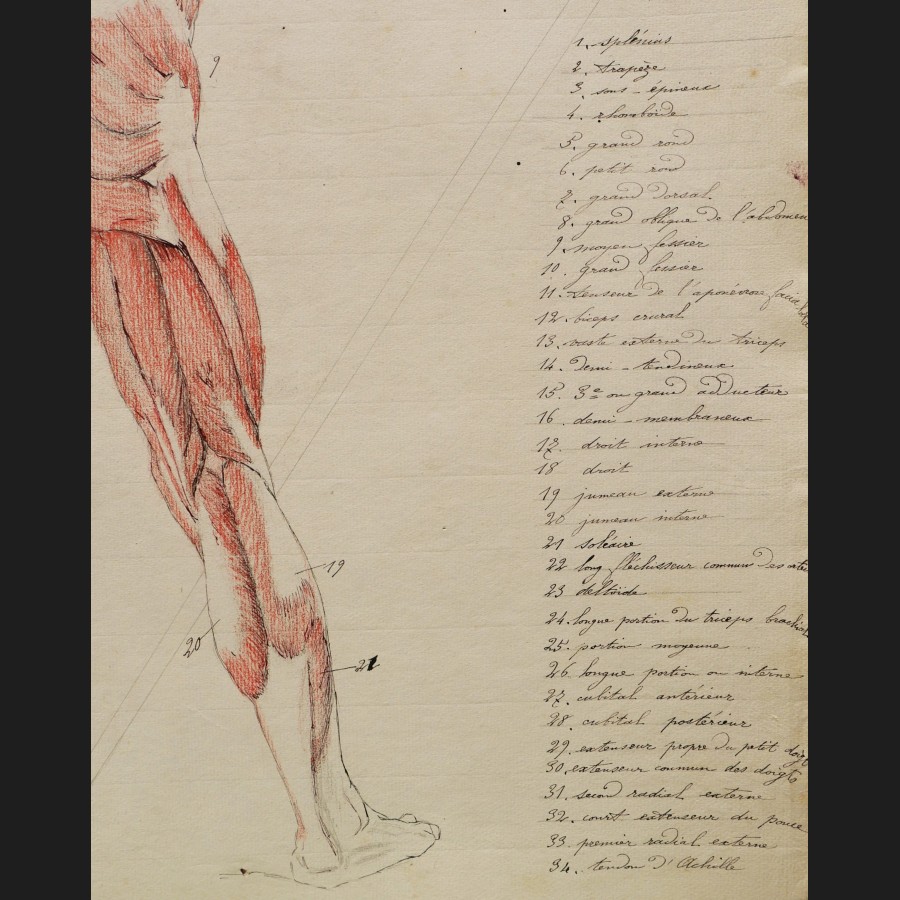 9
1. splénius
2. trapèze
3. sous-épineux
4. rhomboïde
5. grand rond
6. petit rond
7. grand dorsal.
8. grand oblique de l'abdomen
9. moyen fessier
10. grand fessier
11. tenseur de l'aponévrose fascia lata
12. biceps crural
13. vaste externe du triceps
14. demi-tendineux
15. 3e ou grand adducteur
16. demi-membraneux
17. droit interne
18 droit
19 jumeau externe
20 jumeau interne
21 soléaire
22 long fléchisseur commun des
23 deltoïde
24. longue portion du triceps brachial
25. portion moyenne
26. longue portion ou interne
27. cubital antérieur
28. cubital postérieur
29. extenseur propre du petit doigt
30. extenseur commun des doigts
31. second radial externe
32. court extenseur du pouce
33. premier radial externe
34. tendon d'Achille
19
20
21